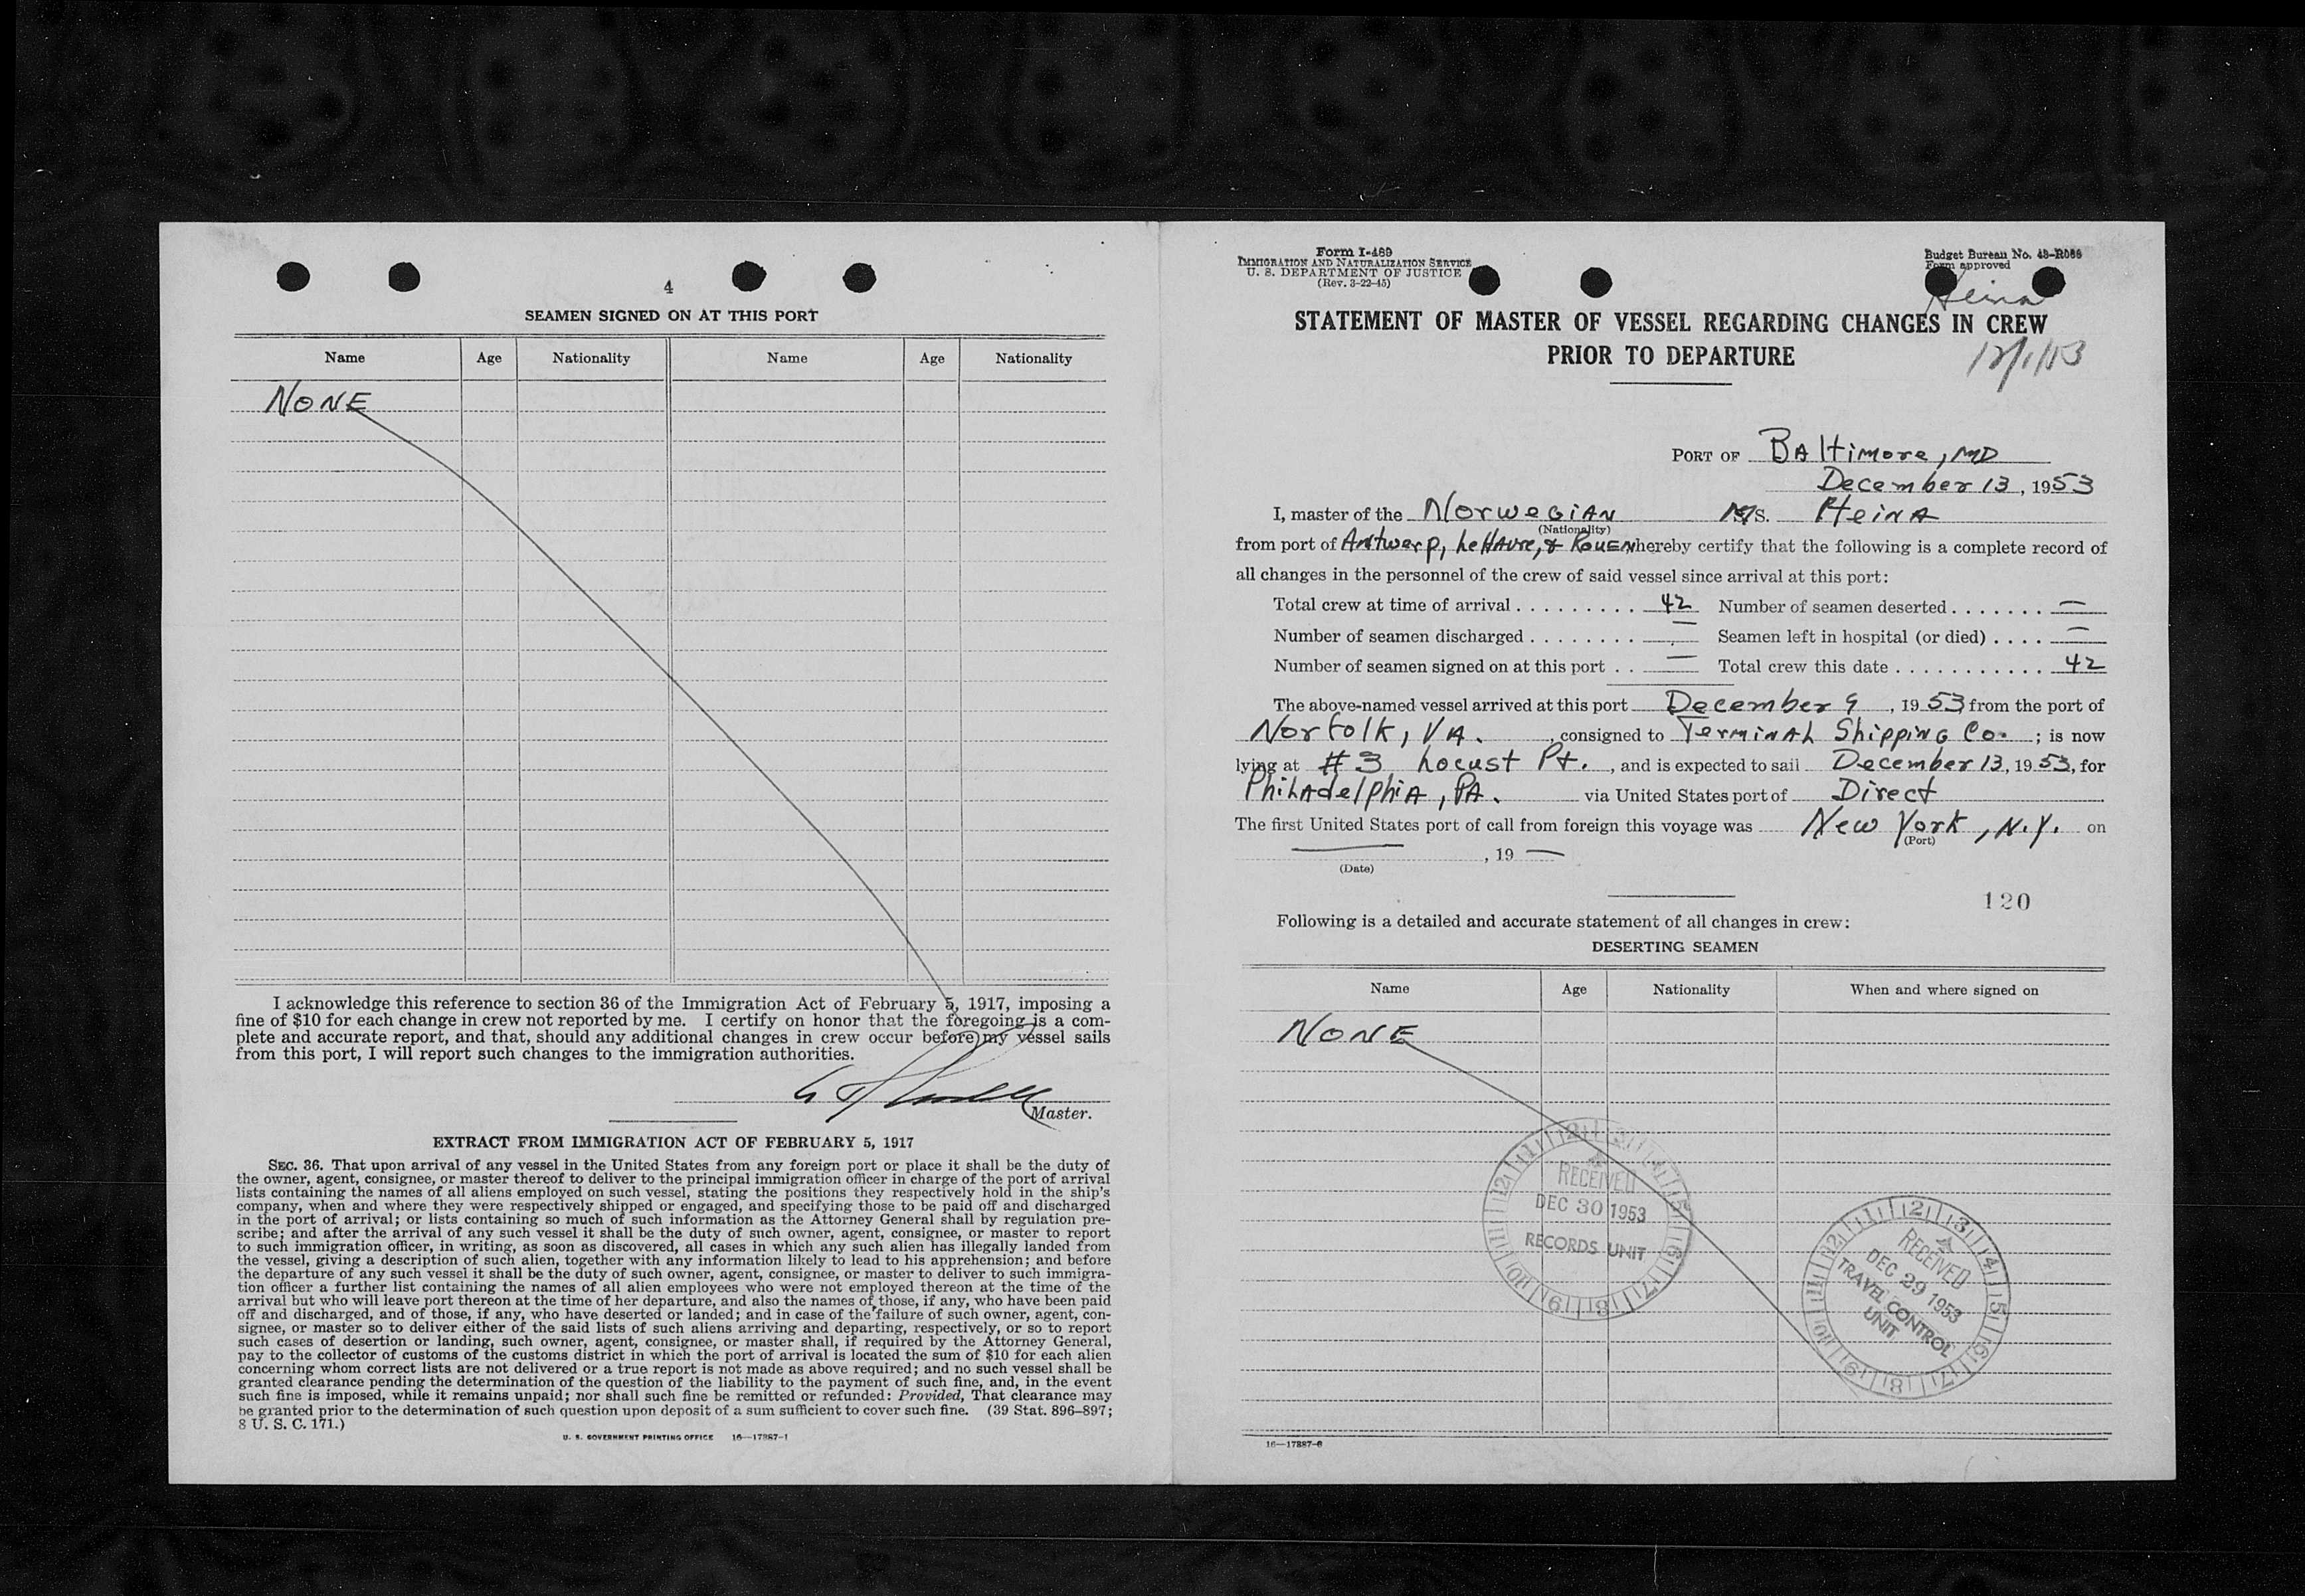 4
SEAMEN SIGNED ON AT THIS PORT
Name Age Nationality Name Age Nationality
NONE
I acknowledge this reference to section 36 of the Immigration Act of February 5, 1917, imposing a
fine of $10 for each change in crew not reported by me. I certify on honor that the foregoing is a com-
plete and accurate report, and that, should any additional changes in crew occur before my vessel sails
from this port, I will report such changes to the immigration authorities.
Master.
EXTRACT FROM IMMIGRATION ACT OF FEBRUARY 5, 1917
SEC. 36. That upon arrival of any vessel in the United States from any foreign port or place it shall be the duty of
the owner, agent, consignee, or master thereof to deliver to the principal immigration officer in charge of the port of arrival
lists containing the names of all aliens employed on such vessel, stating the positions they respectively hold in the ship's
company, when and where they were respectively shipped or engaged, and specifying those to be paid off and discharged
in the port of arrival; or lists containing so much of such information as the Attorney General shall by regulation pre-
scribe; and after the arrival of any such vessel it shall be the duty of such owner, agent, consignee, or master to report
to such immigration officer, in writing, as soon as discovered, all cases in which any such alien has illegally landed from
the vessel, giving a description of such alien, together with any information likely to lead to his apprehension; and before
the departure of any such vessel it shall be the duty of such owner, agent, consignee, or master to deliver to such immigra-
tion officer a further list containing the names of all alien employees who were not employed thereon at the time of the
arrival but who will leave port thereon at the time of her departure, and also the names of those, if any, who have been paid
off and discharged, and of those, if any, who have deserted or landed; and in case of the failure of such owner, agent, con-
signee, or master so to deliver either of the said lists of such aliens arriving and departing, respectively, or so to report
such cases of desertion or landing, such owner, agent, consignee, or master shall, if required by the Attorney General,
pay to the collector of customs of the customs district in which the port of arrival is located the sum of $10 for each alien
concerning whom correct lists are not delivered or a true report is not made as above required; and no such vessel shall be
granted clearance pending the determination of the question of the liability to the payment of such fine, and, in the event
such fine is imposed, while it remains unpaid; nor shall such fine be remitted or refunded: Provided, That clearance may
be granted prior to the determination of such question upon deposit of a sum sufficient to cover such fine. (39 Stat. 896–897;
8 U. S. C. 171.)
U. S. GOVERNMENT PRINTING OFFICE 16—17887-1
Form I-489
IMMIGRATION AND NATURALIZATION SERVICE
U. S. DEPARTMENT OF JUSTICE
(Rev. 3-22-45)
Budget Bureau No. 43-R066
Form approved
Heina
STATEMENT OF MASTER OF VESSEL REGARDING CHANGES IN CREW
PRIOR TO DEPARTURE
12/1/53
PORT OF Baltimore, MD
December 13, 1953
I, master of the Norwegian M/S. Heina
(Nationality)
from port of Antwerp, LeHavre, & Rouen hereby certify that the following is a complete record of
all changes in the personnel of the crew of said vessel since arrival at this port:
Total crew at time of arrival . . . . . . . . . 42 Number of seamen deserted . . . . . . . —
Number of seamen discharged . . . . . . . . — Seamen left in hospital (or died) . . . . —
Number of seamen signed on at this port . . — Total crew this date . . . . . . . . . . . . 42
The above-named vessel arrived at this port December 9, 1953 from the port of
Norfolk, VA., consigned to Terminal Shipping Co.; is now
lying at #3 Locust Pt., and is expected to sail December 13, 1953, for
Philadelphia, PA. via United States port of Direct
The first United States port of call from foreign this voyage was New York, N.Y. on
(Port)
—, 19 —
(Date)
120
Following is a detailed and accurate statement of all changes in crew:
DESERTING SEAMEN
Name Age Nationality When and where signed on
NONE
RECEIVED
DEC 30 1953
RECORDS UNIT
RECEIVED
DEC 29 1953
TRAVEL CONTROL
UNIT
16—17887-6